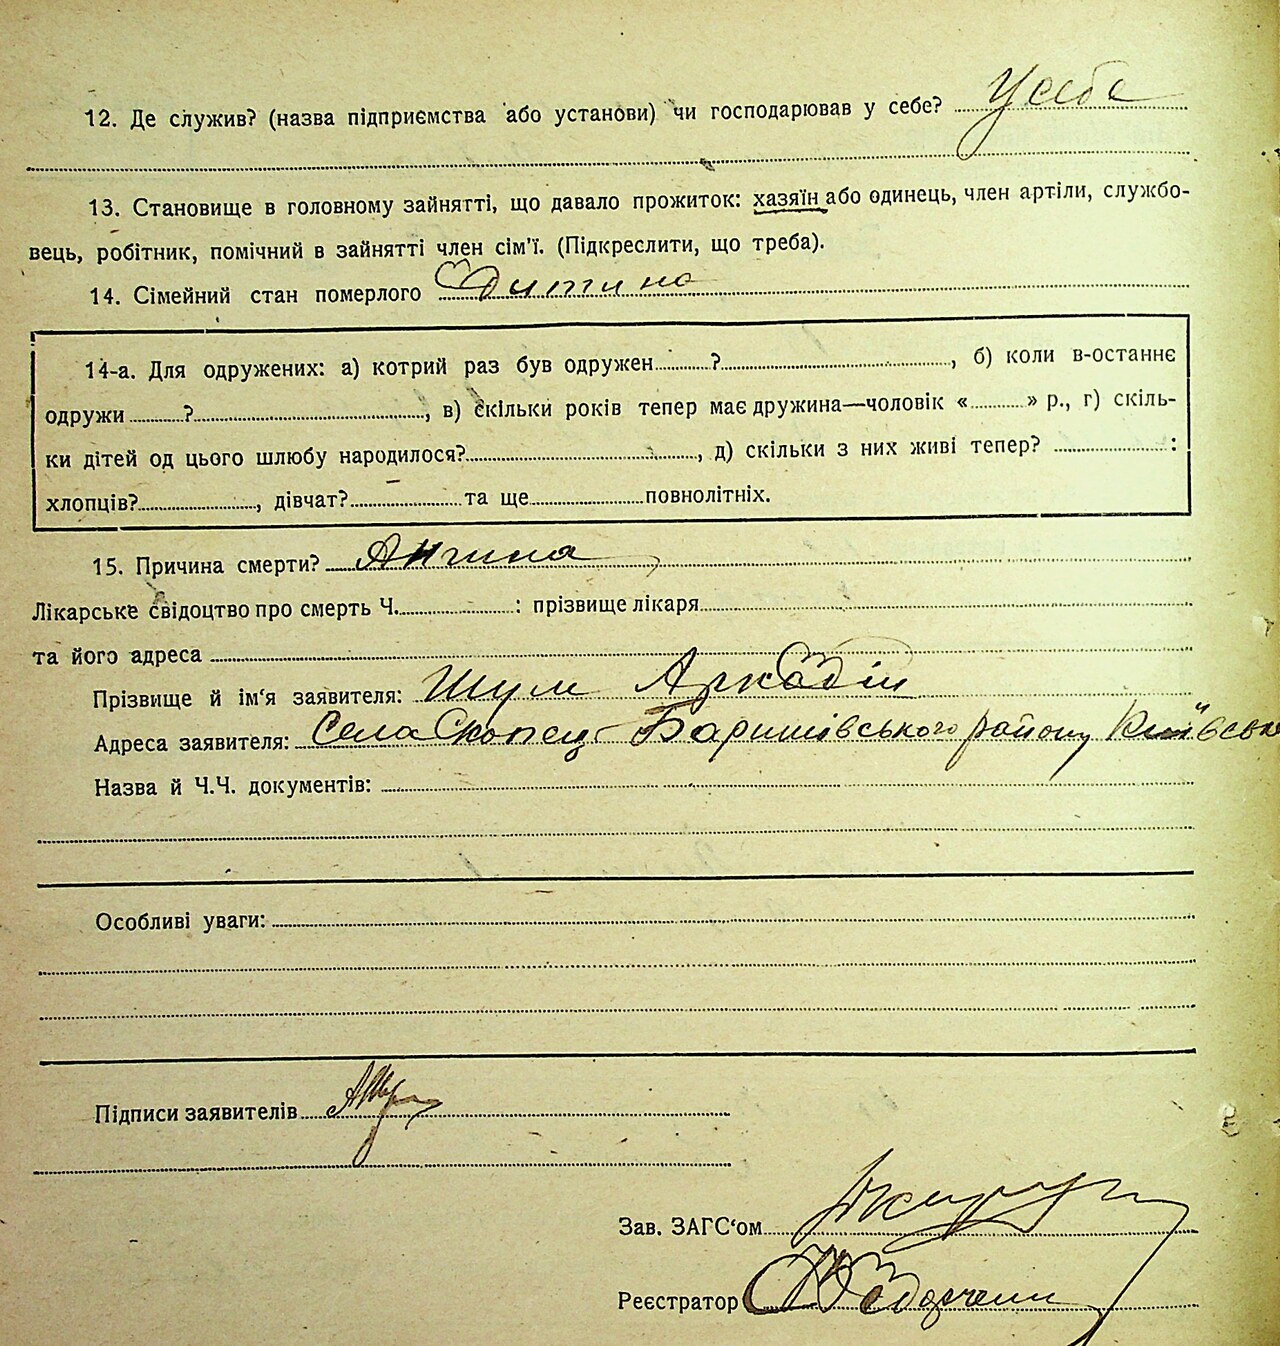 12. Де служив? (назва підприємства або установи) чи господарював у себе? У себе
13. Становище в головному зайнятті, що давало прожиток: хазяїн або одинець, член артіли, службо-
вець, робітник, помічний в зайнятті член сім'ї. (Підкреслити, що треба).
14. Сімейний стан померлого Дитина
14-а. Для одружених: а) котрий раз був одружен ?, б) коли в-останнє
одружи ?, в) скільки років тепер має дружина—чоловік « » р., г) скіль-
ки дітей од цього шлюбу народилося?, д) скільки з них живі тепер? :
хлопців?, дівчат? та ще повнолітніх.
15. Причина смерти? Ангина
Лікарське свідоцтво про смерть Ч. : прізвище лікаря
та його адреса
Прізвище й ім'я заявителя: Шум Аркадій
Адреса заявителя: Села Скопец Баришівського району Київсько
Назва й Ч.Ч. документів:
Особливі уваги:
Підписи заявителів
Зав. ЗАГС'ом
Реєстратор